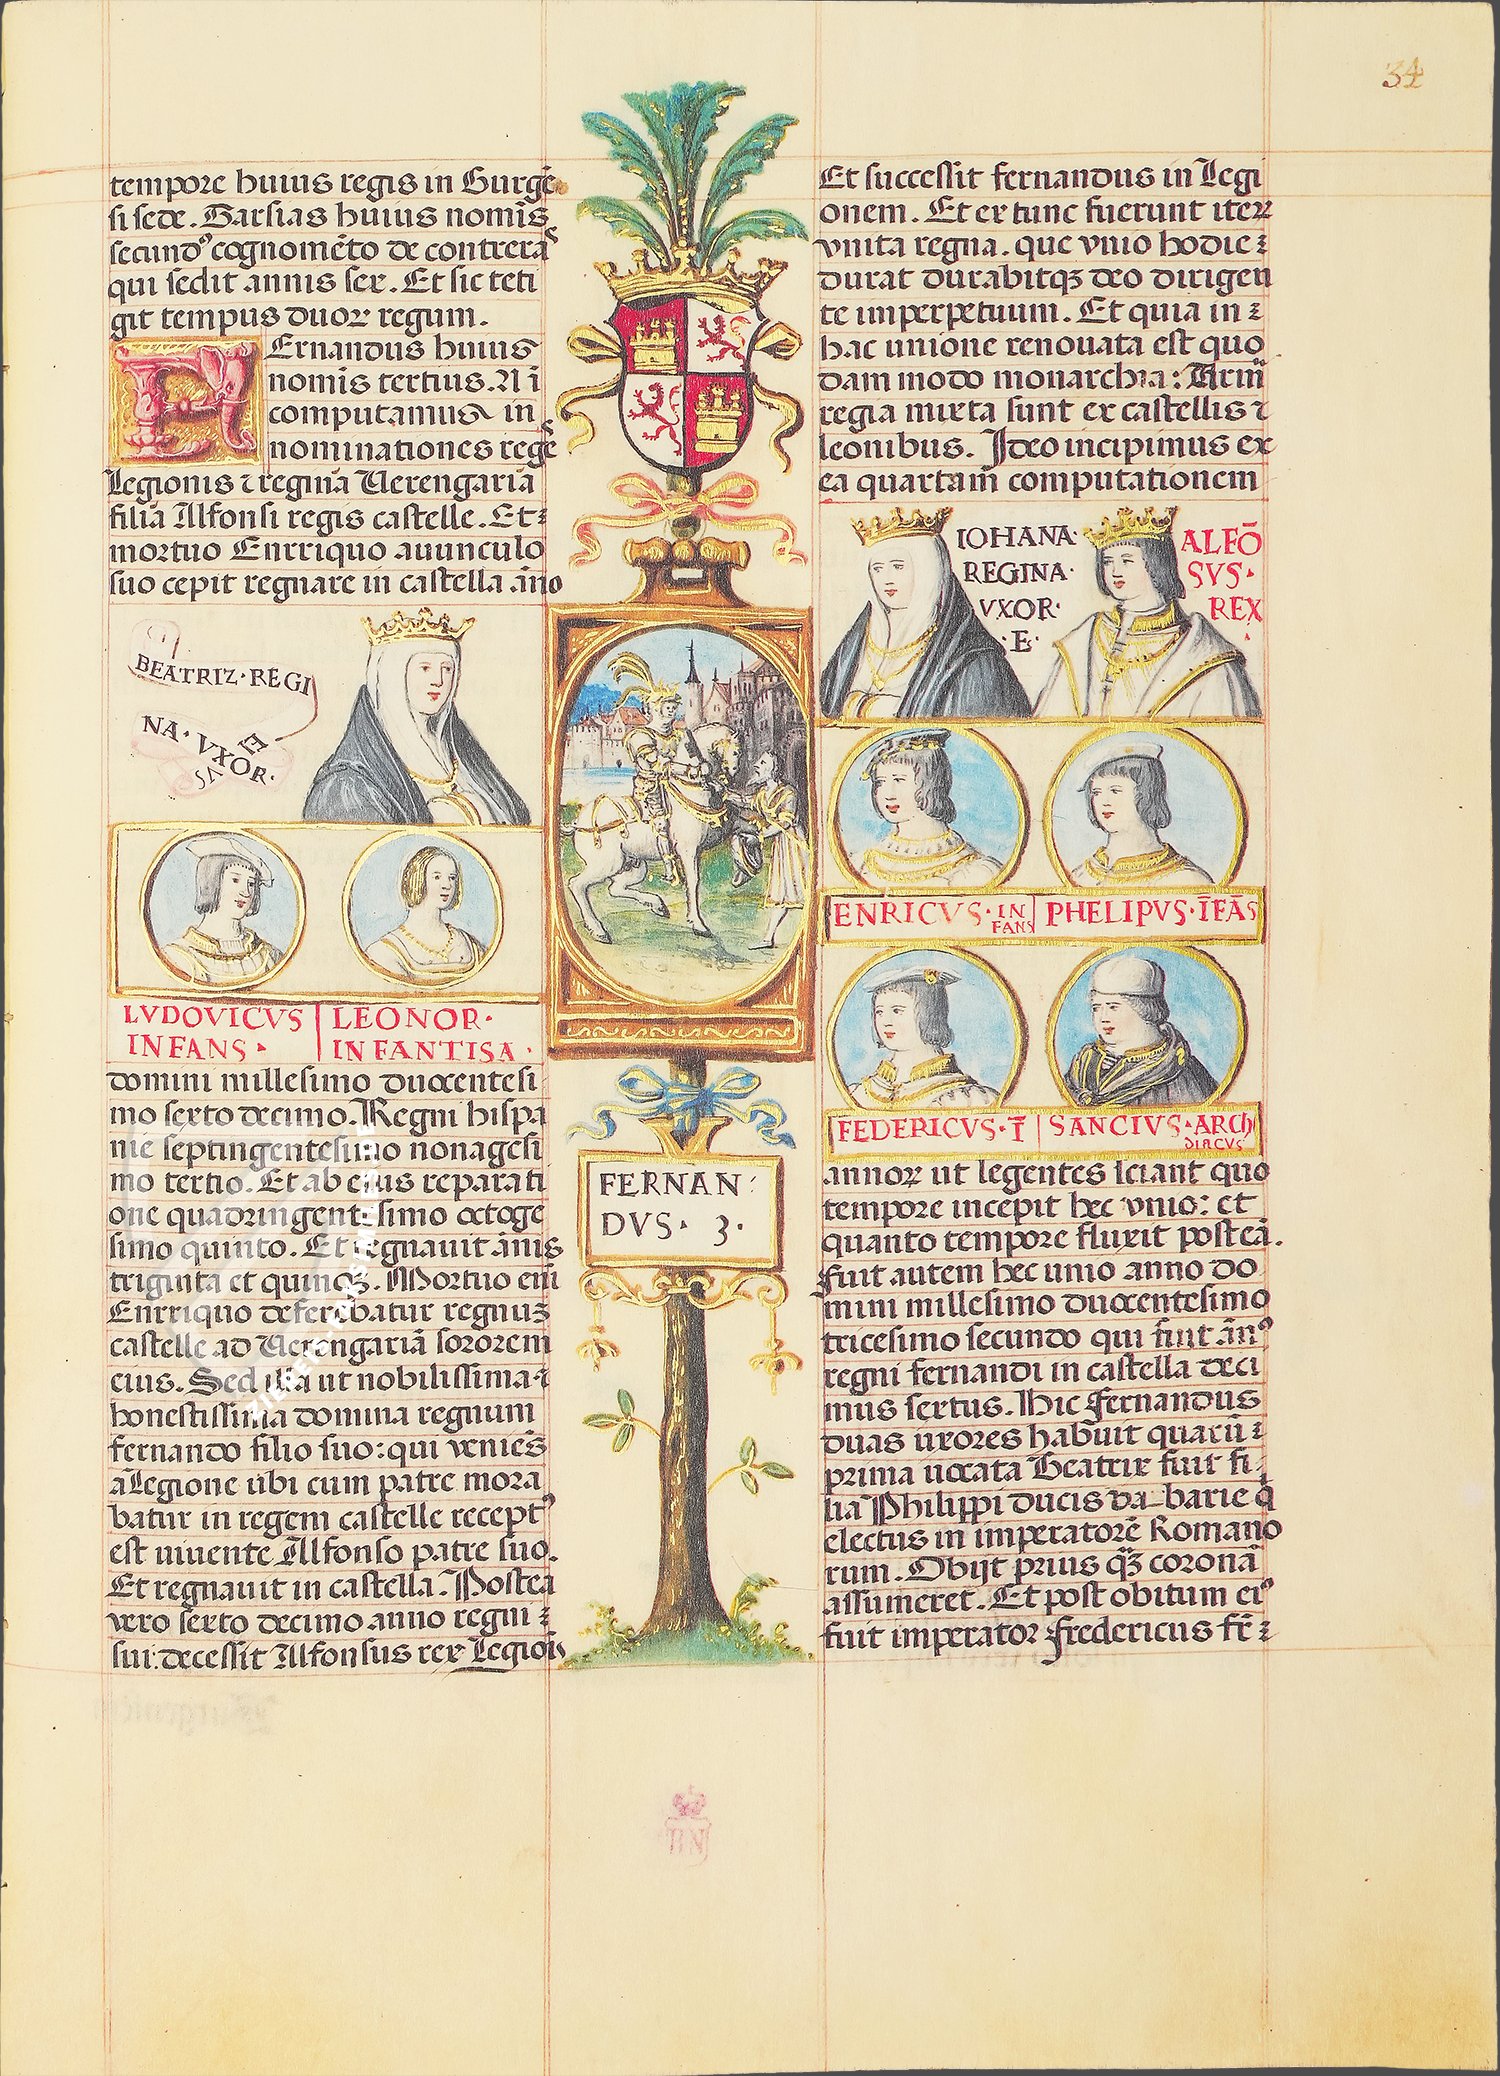 34
tempore huius regis in Burgẽ
si sede. Garsias huius nomĩs
secundꝰ cognomẽto de contrera
qui sedit annis sex. Et sic teti
git tempus duoꝝ regum.
FErnandus huius
nomĩs tertius.
computamus in
nominationes regẽ
Legionis ⁊ reginã Uerengariã
filiã Alfonsi regis castelle. Et
mortuo Enrriquo auunculo
suo cepit regnare in castella ãno
BEATRIZ·REGI
NA·VXOR·
E
SVA
LVDOVICVS
INFANS·
LEONOR·
INFANTISA·
domini millesimo duocentesi
mo sexto decimo. Regni hispa
nie septingentesimo nonagesi
mo tertio. Et ab eius reparati
one quadringentesimo octoge
simo quinto. Et regnauit ãnis
triginta et quinqꝫ. Mortuo eni
Enrriquo deferebatur regnuʒ
castelle ad Uerengariã sororem
eius. Sed illa ut nobilissima ⁊
honestissima domina regnum
fernando filio suo: qui veniẽs
a Legione ubi cum patre mora
batur in regem castelle receptꝰ
est uiuente Alfonso patre suo.
Et regnauit in castella. Postea
vero sexto decimo anno regni
sui: decessit Alfonsus rex Legiois
FERNAN
DVS· 3·
Et successit fernandus in Legi
onem. Et ex tunc fuerunt iteꝝ
vnita regna. que vnio hodie
durat durabitqꝫ deo dirigen
te imperpetuum. Et quia in
hac unione renouata est quo
dam modo monarchia: Arm
regia mixta sunt ex castellis ⁊
leonibus. Ideo incipimus ex
ea quartam computationem
IOHANA·
REGINA·
VXOR·
·E·
ALFÕ
SVS·
REX
ENRICVS·IN
FANS
PHELIPVS·ĨFÃS
FEDERICVS·Ĩ
SANCIVS·ARCH
DIACVS
annoꝝ ut legentes sciant quo
tempore incepit hec vnio: et
quanto tempore fluxit posteã.
fuit autem hec unio anno do
mini millesimo duocentesimo
tricesimo secundo qui fuit ãnꝰ
regni fernandi in castella deci
mus sextus. Hic fernandus
duas uxores habuit quarũ
prima uocata Beatrix fuit fi
lia Philippi ducis babarie q̃
electus in imperatorẽ Romano
rum. Obijt prius qꝫ coronã
assumeret. Et post obitum eiꝰ
fuit imperator fredericus fr̃
BN